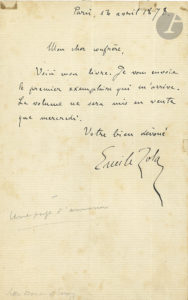 Paris, 12 avril 1878
Mon cher confrère,
Voici mon livre. Je vous envoie
le premier exemplaire qui m'arrive.
Le volume ne sera mis en vente
que mercredi.
Votre bien dévoué
Emile Zola
Une page d'amour